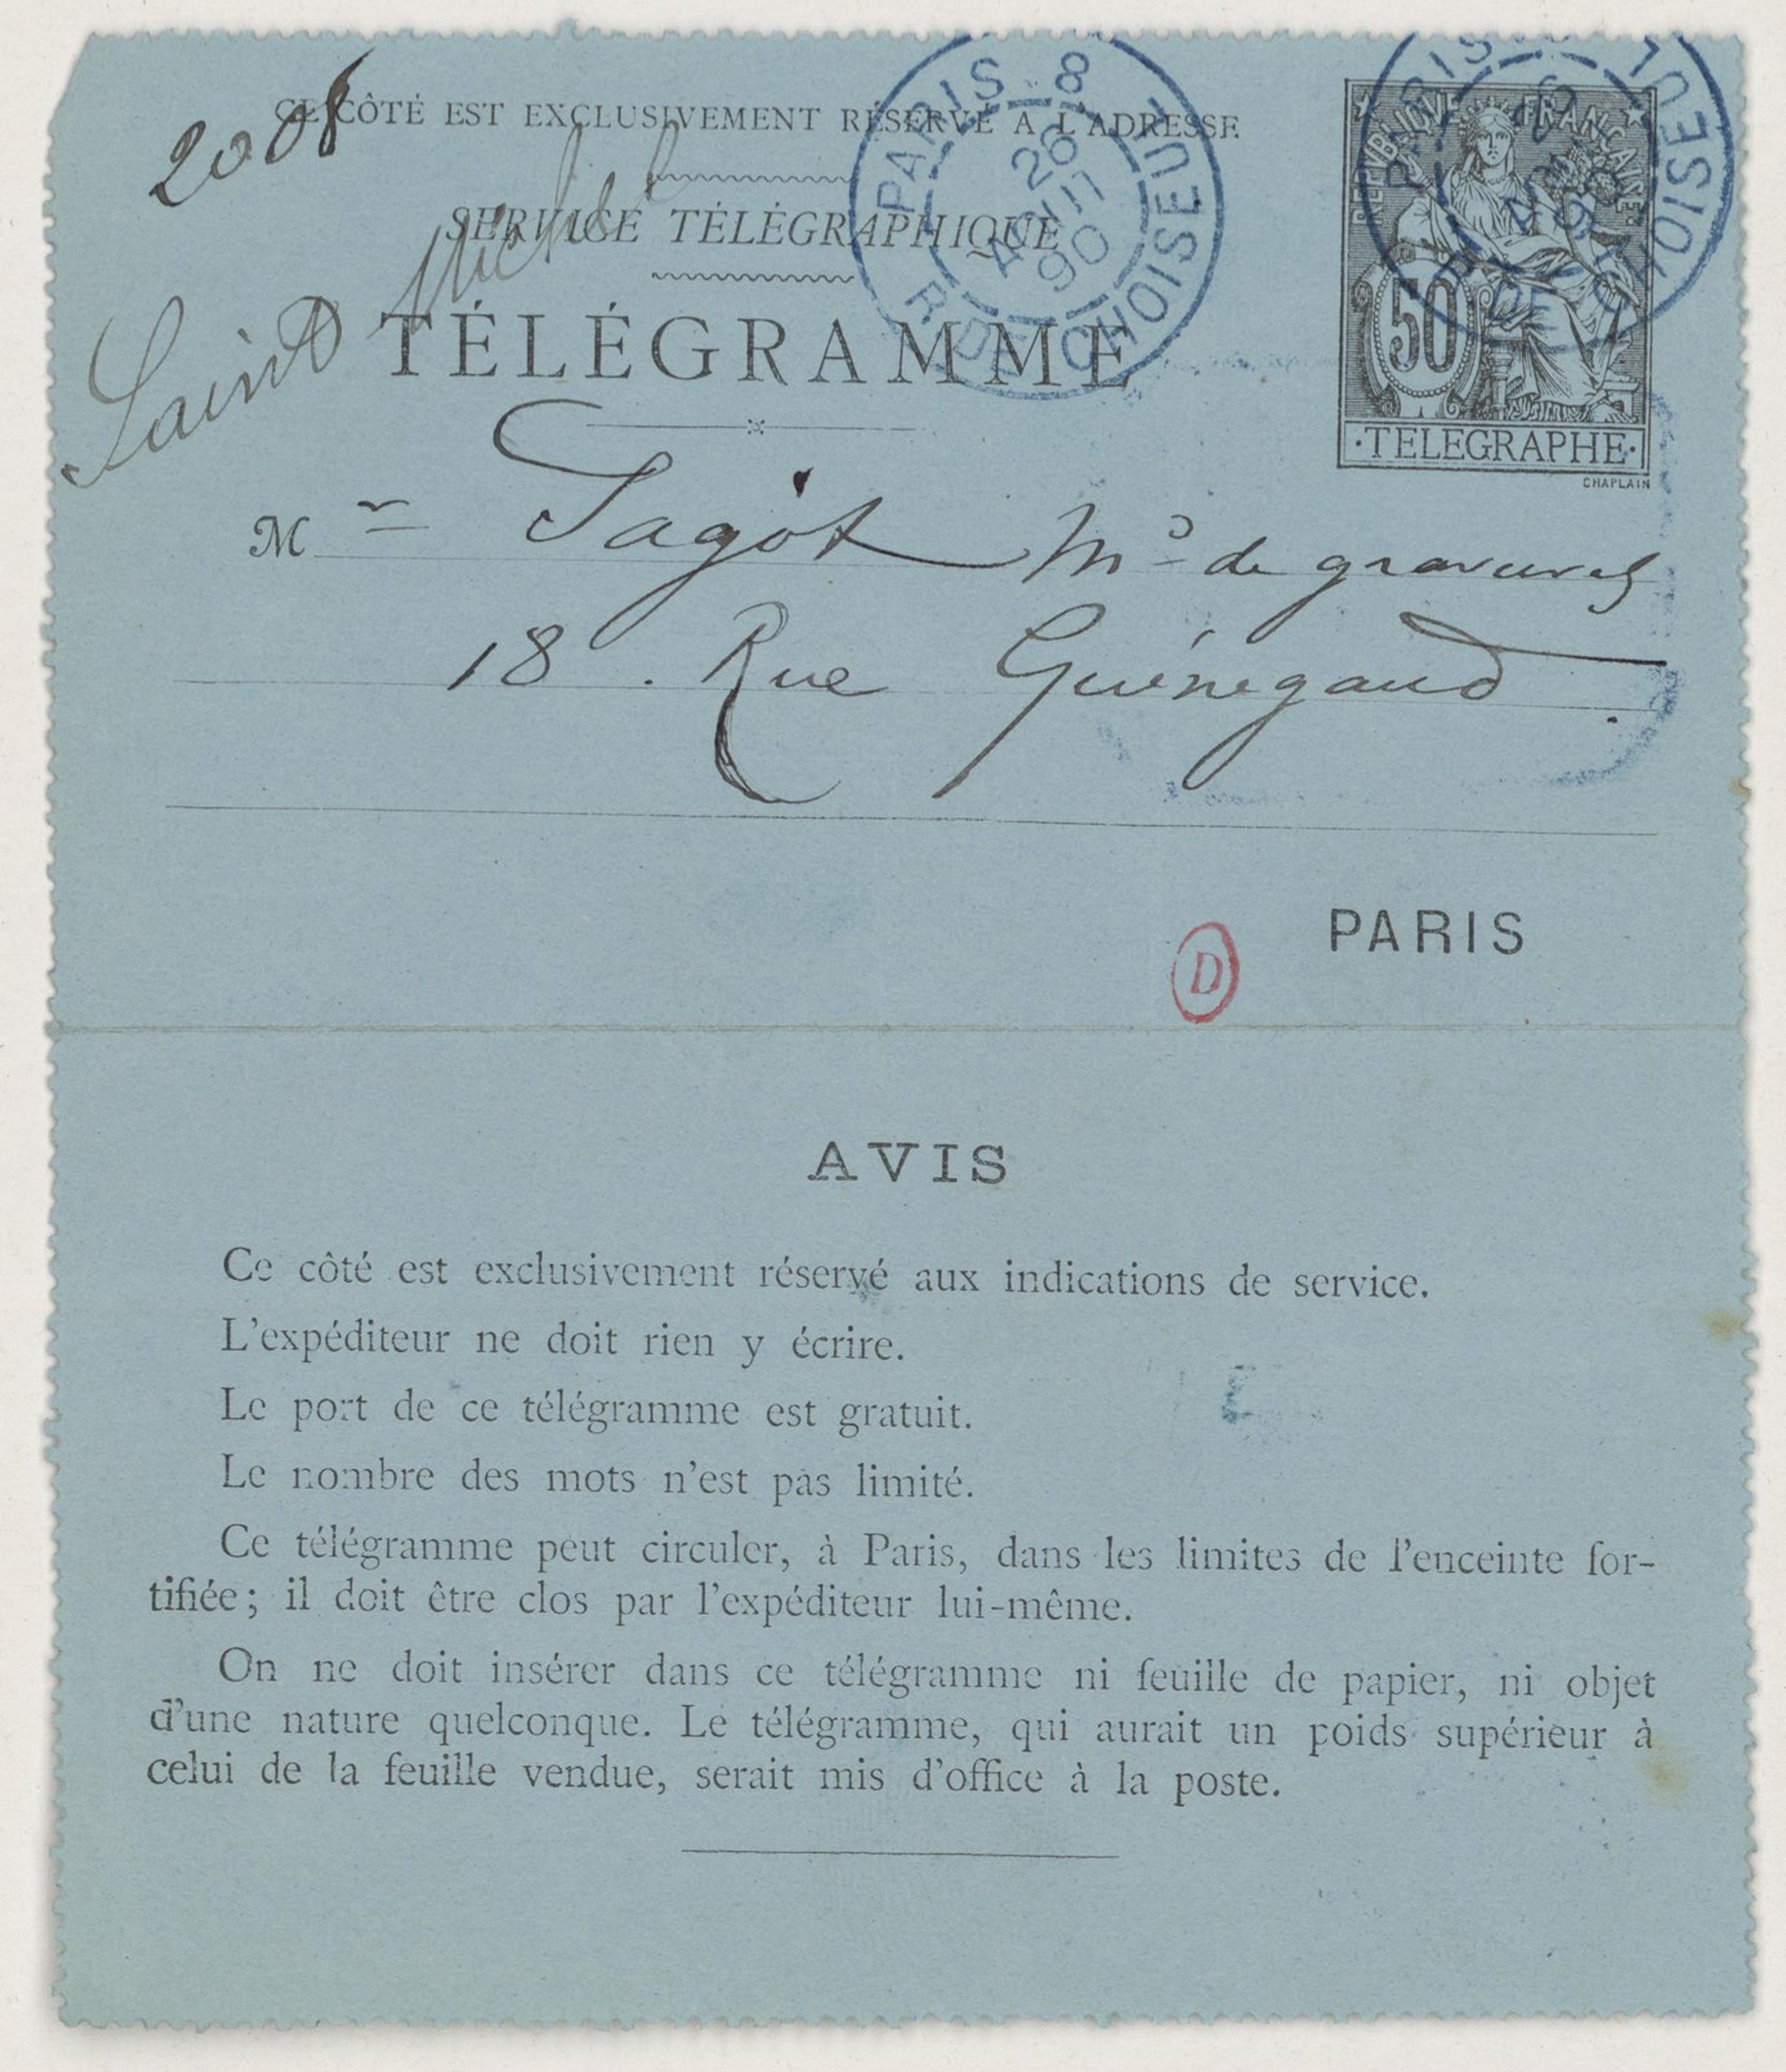 2008
CE CÔTÉ EST EXCLUSIVEMENT RÉSERVÉ A L'ADRESSE
SERVICE TÉLÉGRAPHIQUE
Saint Michel
TÉLÉGRAMME
PARIS 8
26
AVRIL
90
R. DE CHOISEUL
PARIS 8
26
AVRIL
90
R. DE CHOISEUL
REPVBLIQVE FRANÇAISE
50
·TELEGRAPHE·
CHAPLAIN
Mr Sagot Md de gravures
18. Rue Guénégaud.
PARIS
D
AVIS
Ce côté est exclusivement réservé aux indications de service.
L'expéditeur ne doit rien y écrire.
Le port de ce télégramme est gratuit.
Le nombre des mots n'est pas limité.
Ce télégramme peut circuler, à Paris, dans les limites de l'enceinte for-
tifiée; il doit être clos par l'expéditeur lui-même.
On ne doit insérer dans ce télégramme ni feuille de papier, ni objet
d'une nature quelconque. Le télégramme, qui aurait un poids supérieur à
celui de la feuille vendue, serait mis d'office à la poste.